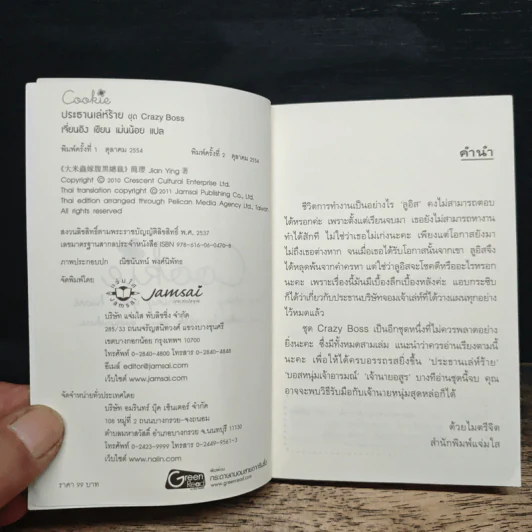 Cookie
ประธานเล่ห์ร้าย ชุด Crazy Boss
เจี่ยนอิง เขียน เม่นน้อย แปล
พิมพ์ครั้งที่ 1 ตุลาคม 2554
พิมพ์ครั้งที่ 2 ตุลาคม 2554
《大米蟲嫁腹黑總裁》簡瓔 Jian Ying 著
Copyright © 2010 Crescent Cultural Enterprise Ltd.
Thai translation copyright © 2011 Jamsai Publishing Co., Ltd.
Thai edition arranged through Pelican Media Agency Ltd., Taiwan
All rights reserved.
สงวนลิขสิทธิ์ตามพระราชบัญญัติลิขสิทธิ์ พ.ศ. 2537
เลขมาตรฐานสากลประจำหนังสือ ISBN 978-616-06-0470-8
ภาพประกอบปก ณิชนันทน์ พงศ์นิพัทธ
จัดพิมพ์โดย
jamsai
บริษัท แจ่มใส พับลิชชิ่ง จำกัด
285/33 ถนนจรัญสนิทวงศ์ แขวงบางขุนศรี
เขตบางกอกน้อย กรุงเทพฯ 10700
โทรศัพท์ 0-2840-4800 โทรสาร 0-2840-4888
อีเมล์ editor@jamsai.com
เว็บไซต์ www.jamsai.com
จัดจำหน่ายทั่วประเทศโดย
บริษัท อมรินทร์ บุ๊ค เซ็นเตอร์ จำกัด
108 หมู่ที่ 2 ถนนบางกรวย-จงถนอม
ตำบลมหาสวัสดิ์ อำเภอบางกรวย จ.นนทบุรี 11130
โทรศัพท์ 0-2423-9999 โทรสาร
เว็บไซต์ www.naiin.com
ราคา 99 บาท
Green Read
พิมพ์ด้วย
กระดาษถนอมสายตากรีนรีด
www.greenread.com
คำนำ
ชีวิตการทำงานเป็นอย่างไร 'ลูอีส' คงไม่สามารถตอบ
ได้หรอกค่ะ เพราะตั้งแต่เรียนจบมา เธอยังไม่สามารถหางาน
ทำได้สักที ไม่ใช่ว่าเธอไม่เก่งนะคะ เพียงแต่โอกาสยังมา
ไม่ถึงเธอต่างหาก จนเมื่อเธอได้รับโอกาสนั้นจากเขา ลูอีสจึง
ได้หลุดพ้นจากคำครหา แต่ใช่ว่าลูอีสจะโชคดีหรืออะไรหรอก
นะคะ เพราะเรื่องนี้มันมีเบื้องลึกเบื้องหลังค่ะ แอบกระซิบ
ก็ได้ว่าเกี่ยวกับประธานบริษัทจอมเจ้าเล่ห์ที่ได้วางแผนทุกอย่าง
ไว้หมดแล้ว
ชุด Crazy Boss เป็นอีกชุดหนึ่งที่ไม่ควรพลาดอย่าง
ยิ่งนะคะ ซึ่งมีทั้งหมดสามเล่ม แนะนำว่าควรอ่านเรียงตามนี้
นะคะ เพื่อให้ได้ครบอรรถรสยิ่งขึ้น 'ประธานเล่ห์ร้าย'
'บอสหนุ่มเจ้าอารมณ์' 'เจ้านายอสูร' บางทีอ่านชุดนี้จบ คุณ
อาจจะพบวิธีรับมือกับเจ้านายหนุ่มสุดหล่อก็ได้
ด้วยไมตรีจิต
สำนักพิมพ์แจ่มใส